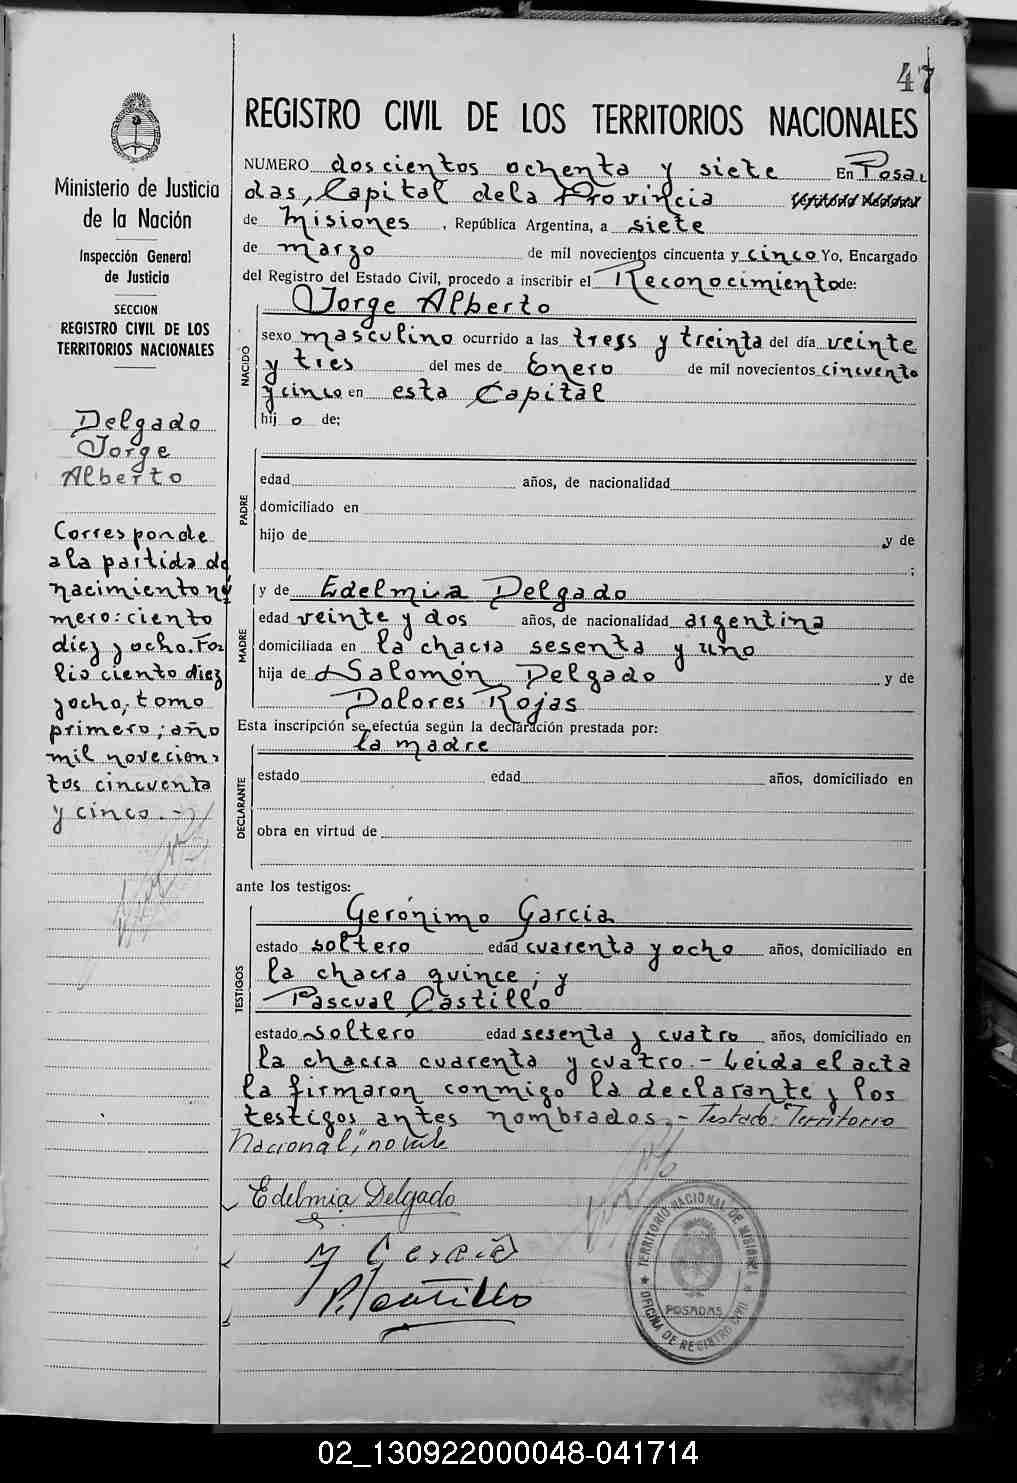 47
REGISTRO CIVIL DE LOS TERRITORIOS NACIONALES
Ministerio de Justicia
de la Nación
Inspección General
de Justicia
SECCION
REGISTRO CIVIL DE LOS
TERRITORIOS NACIONALES
Delgado
Jorge
Alberto
Corresponde
a la partida de
nacimiento nú
mero: ciento
diez y ocho. Fo
lio ciento diez
y ocho; tomo
primero; año
mil novecien
tos cincuenta
y cinco.-
NUMERO dos cientos ochenta y siete En Posa
das, Capital de la Provincia
de Misiones, República Argentina, a siete
de marzo de mil novecientos cincuenta y cinco Yo, Encargado
del Registro del Estado Civil, procedo a inscribir el Reconocimiento de:
NACIDO
Jorge Alberto
sexo masculino ocurrido a las tres y treinta del día veinte
y tres del mes de Enero de mil novecientos cincuenta
y cinco en esta Capital
hijo de:
PADRE
edad años, de nacionalidad
domiciliado en
hijo de y de
;
MADRE
y de Edelmia Delgado
edad veinte y dos años, de nacionalidad argentina
domiciliada en la chacra sesenta y uno
hija de Salomón Delgado y de
Dolores Rojas
Esta inscripción se efectúa según la declaración prestada por:
la madre
DECLARANTE
estado edad años, domiciliado en
obra en virtud de
ante los testigos:
TESTIGOS
Gerónimo Garcia
estado soltero edad cuarenta y ocho años, domiciliado en
la chacra quince; y
Pascual Castillo
estado soltero edad sesenta y cuatro años, domiciliado en
la chacra cuarenta y cuatro.- Leida el acta
la firmaron conmigo la declarante y los
testigos antes nombrados.- Testado: "Territorio
Nacional", no vale
Edelmia Delgado
P. Castillo
TERRITORIO NACIONAL DE MISIONES
POSADAS
OFICINA DE REGISTRO CIVIL
02_130922000048-041714